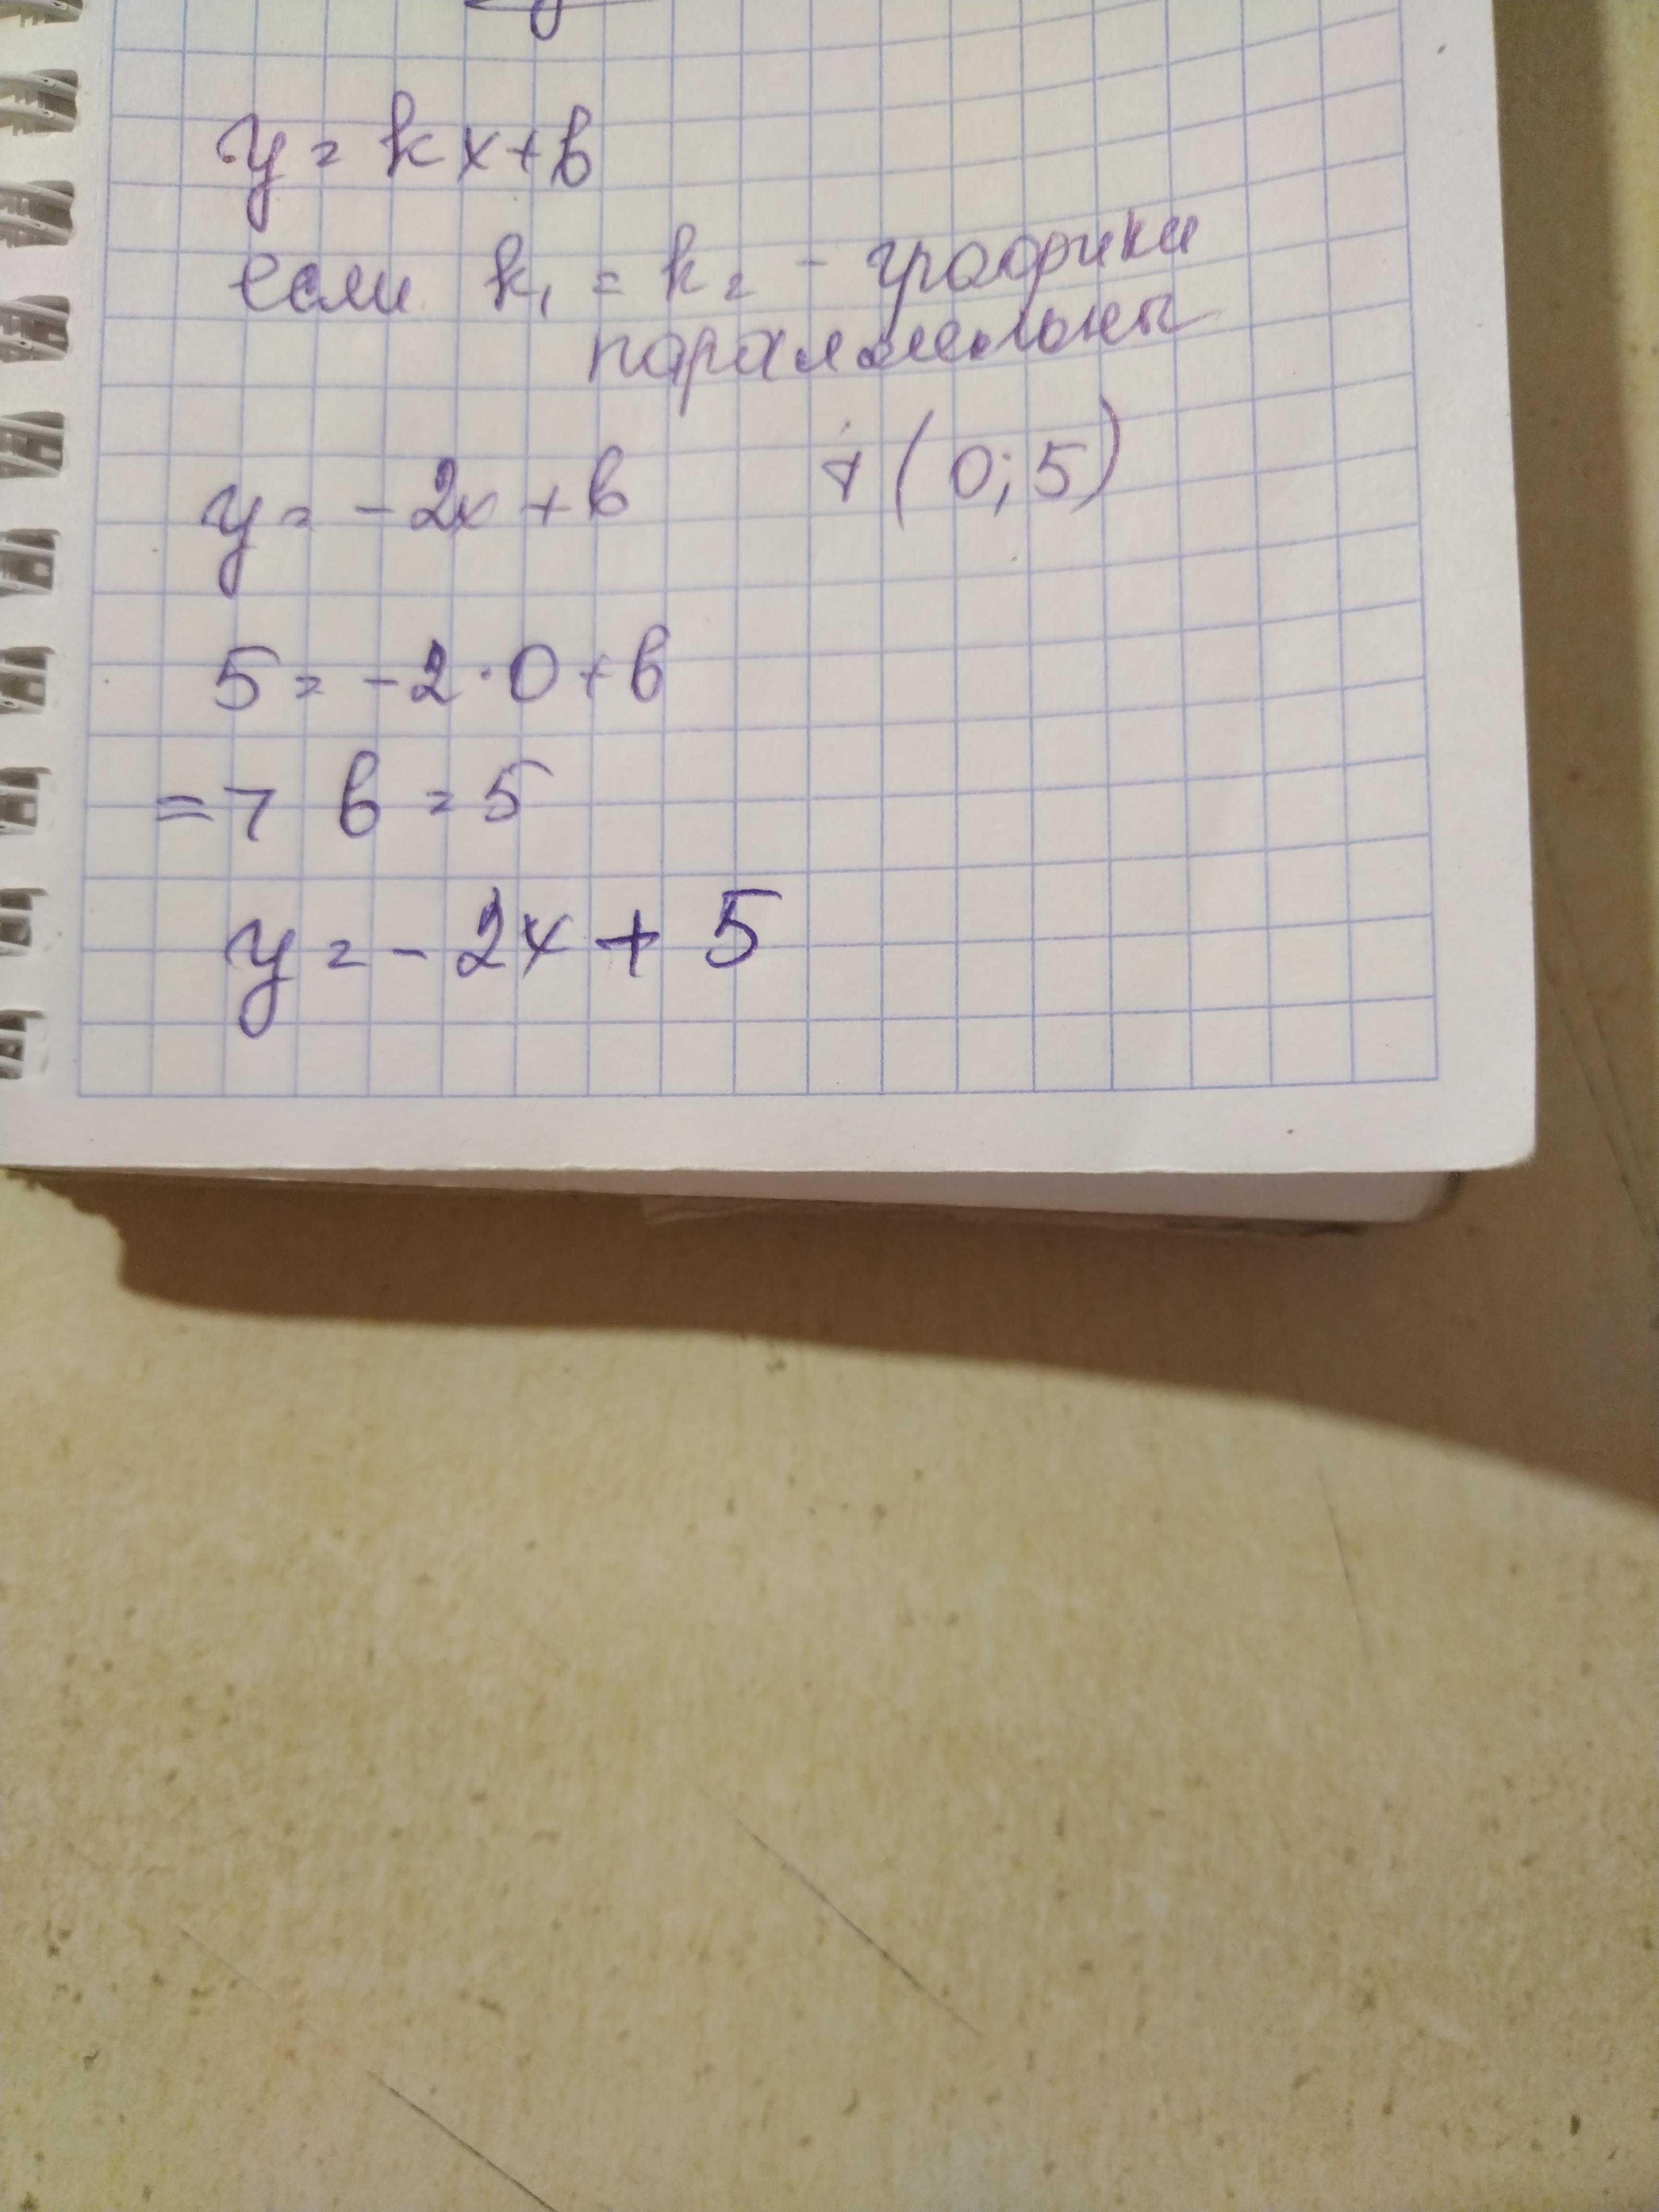 y = kx + b
если k₁ = k₂ - графики
параллельны
y = -2x + b т (0; 5)
5 = -2·0 + b
=> b = 5
y = -2x + 5